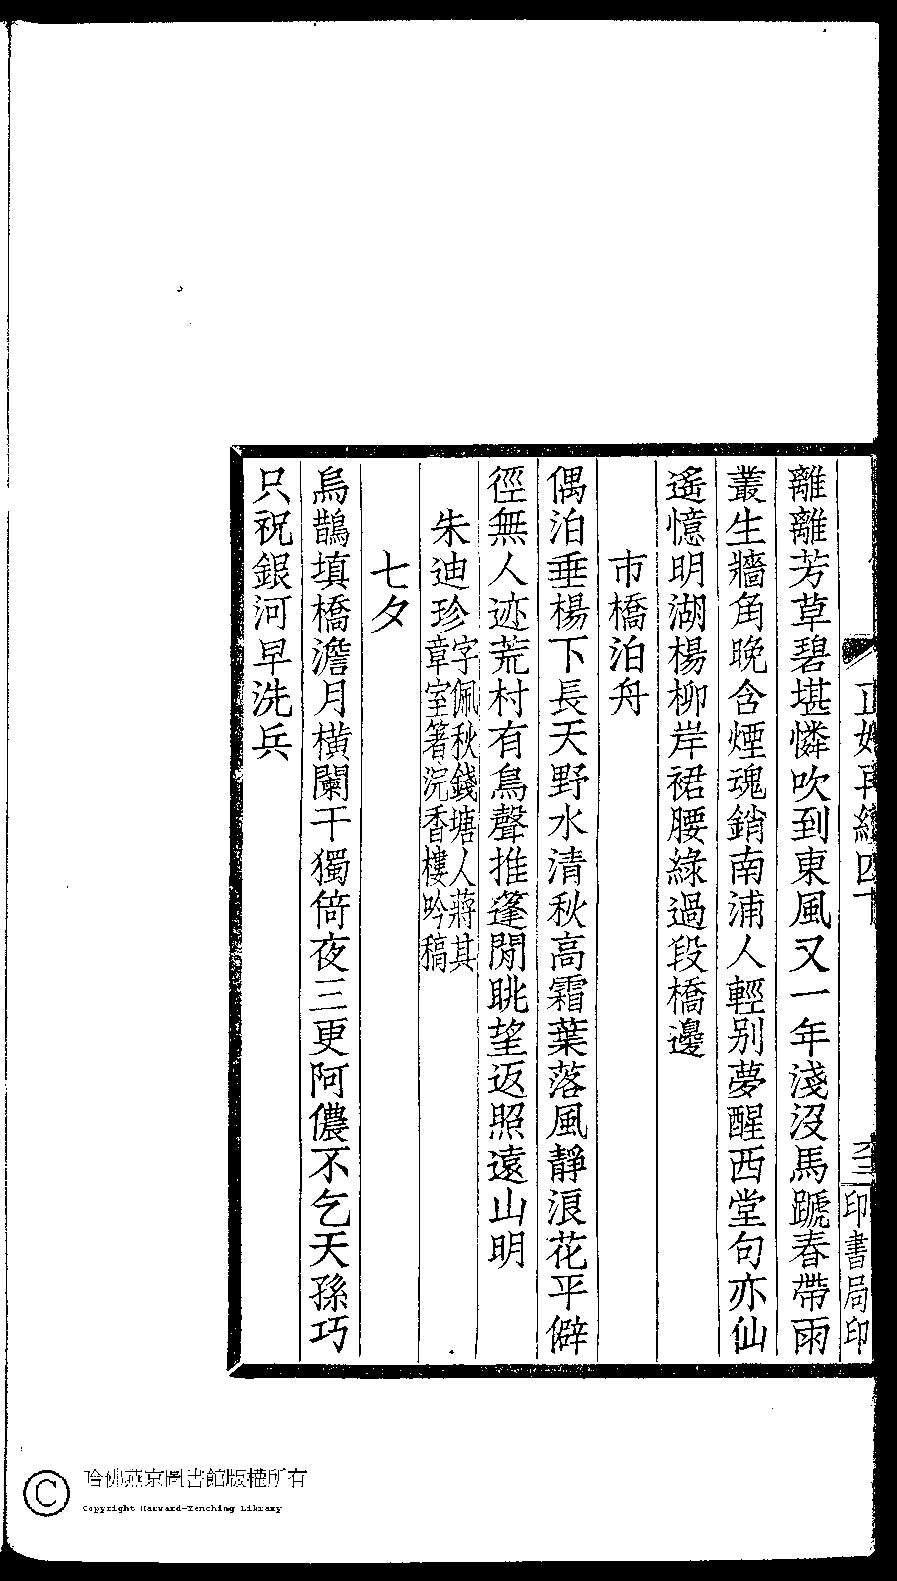 離離芳草碧堪憐吹到東風又一年淺沒馬蹏春帶雨
叢生牆角晚含煙魂銷南浦人輕别夢醒西堂句亦仙
遙憶明湖楊柳岸裙腰綠過段橋邊
市橋泊舟
偶泊垂楊下長天野水清秋高霜葉落風靜浪花平僻
徑無人迹荒村有鳥聲推篷閒眺望返照遠山明
朱迪珍字佩秋錢塘人蔣其章室箸浣香樓吟稿
七夕
烏鵲填橋澹月橫闌干獨倚夜三更阿儂不乞天孫巧
只祝銀河早洗兵
正始再續四
印書局印
哈佛燕京圖書館版權所有
Copyright Harvard-Yenching Library